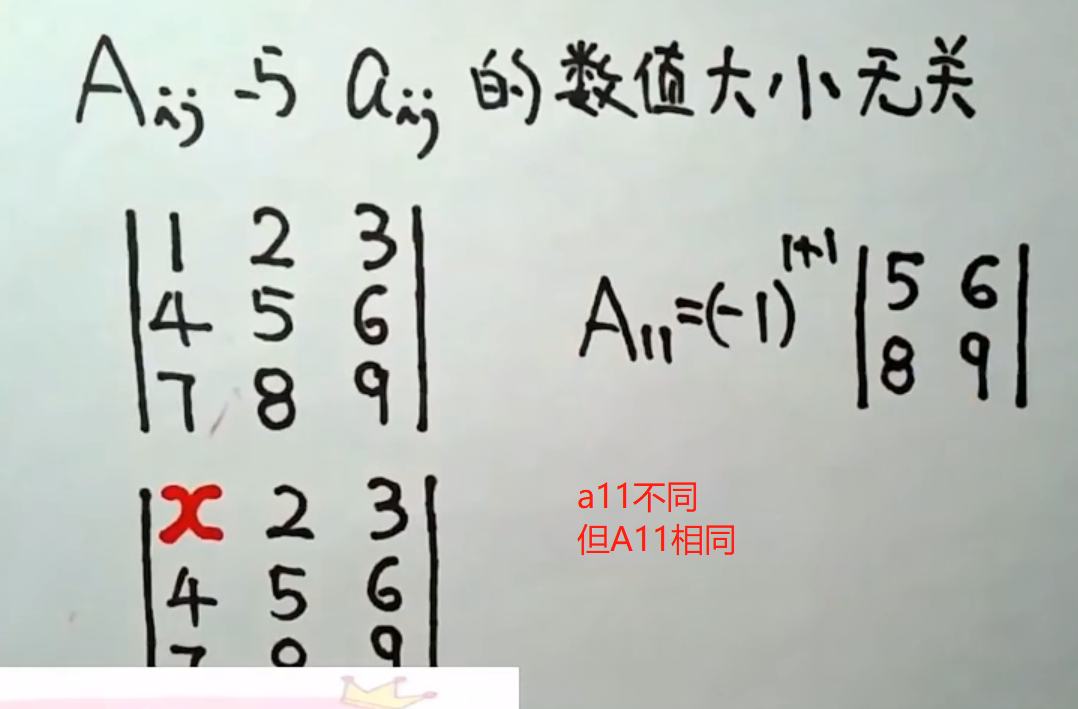 Aij 与 aij 的数值大小无关
| 1 2 3 |
| 4 5 6 |
| 7 8 9 |
A11=(-1)^1+1 | 5 6 |
| 8 9 |
| x 2 3 |
| 4 5 6 |
| 7 8 9 |
a11不同
但A11相同